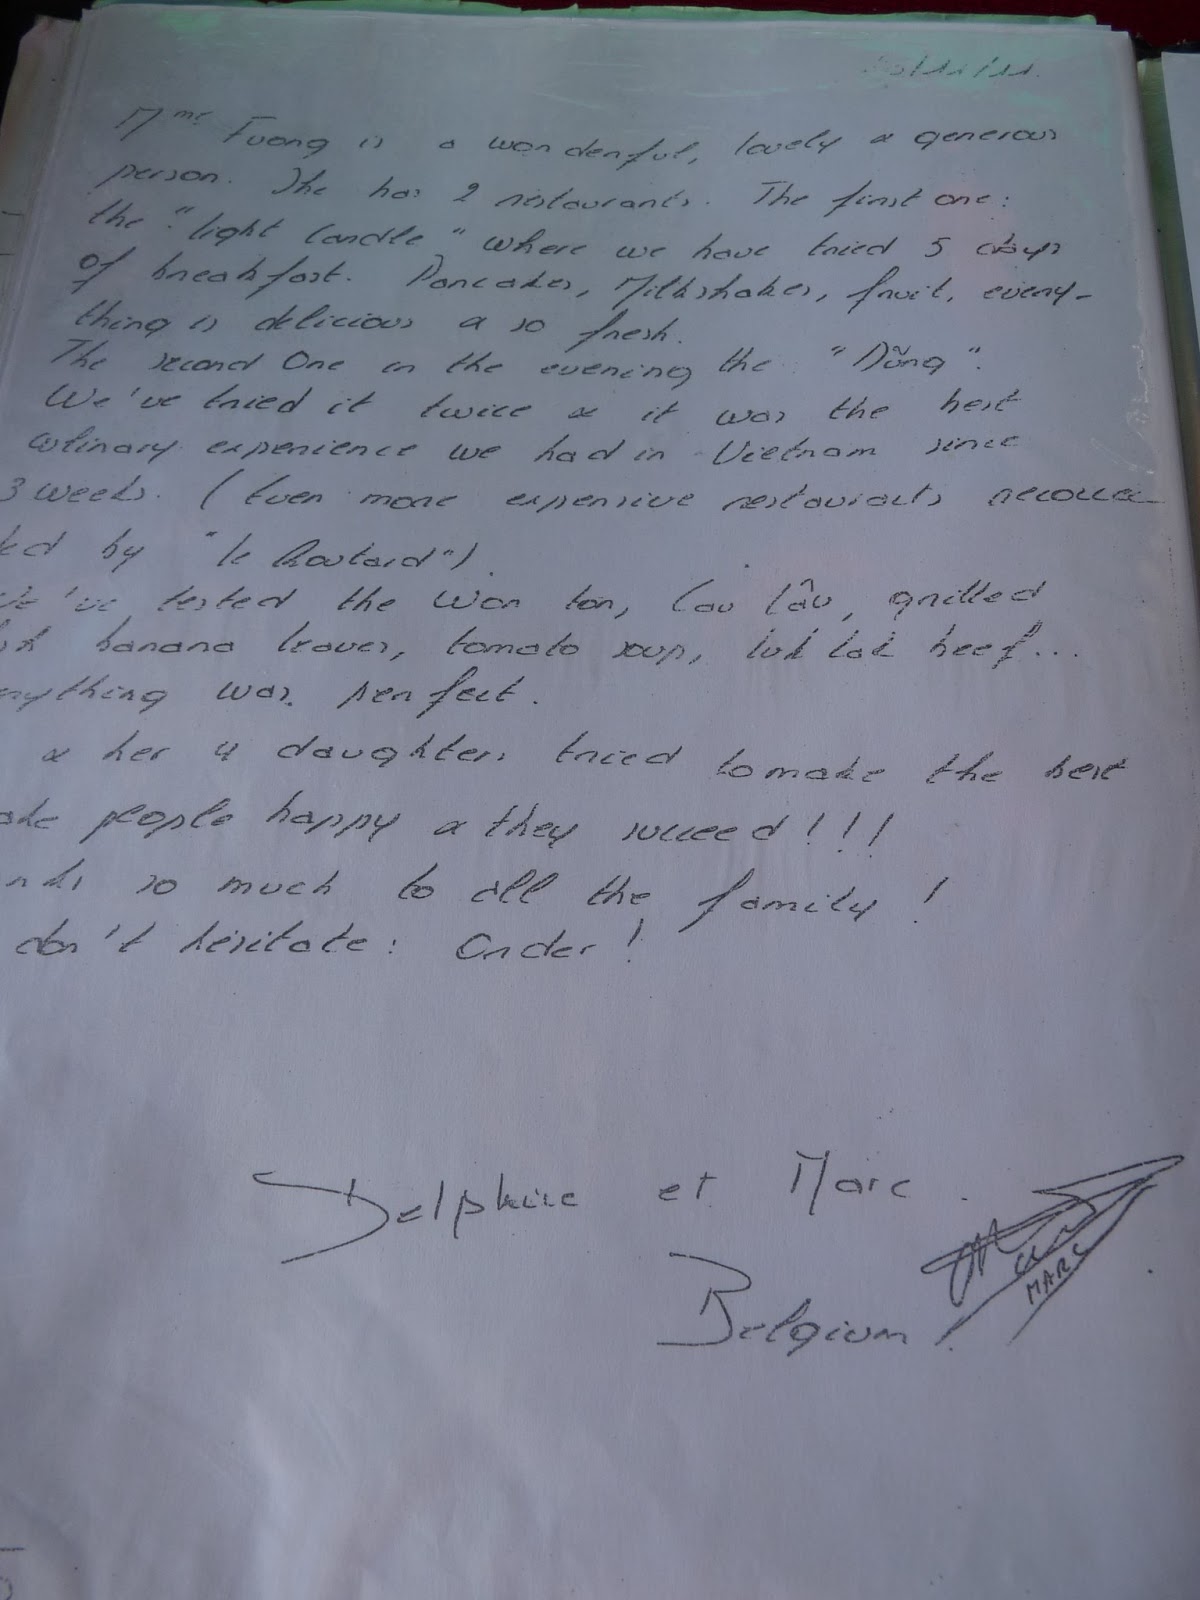 /11/11.
Mme Fuong is a wonderful, lovely & generous
person. She has 2 restaurants. The first one:
the "light Candle" where we have tried 5 days
of breakfast. Pancakes, Milkshakes, fruit, every-
thing is delicious & so fresh.
The second One in the evening the "Dũng".
We've tried it twice & it was the best
culinary experience we had in Vietnam since
3 weeks. (Even more expensive restaurants recomm
ded by "le Routard").
We've tested the Won ton, Cau Lâu, grilled
banana leaves, tomato soup, luk lak beef...
erything was perfect.
& her 4 daughters tried to make the best
ake people happy & they succeed!!!
nks so much to all the family!
don't hésitate: Order!
Delphine et Marc.
Belgium.
MARC